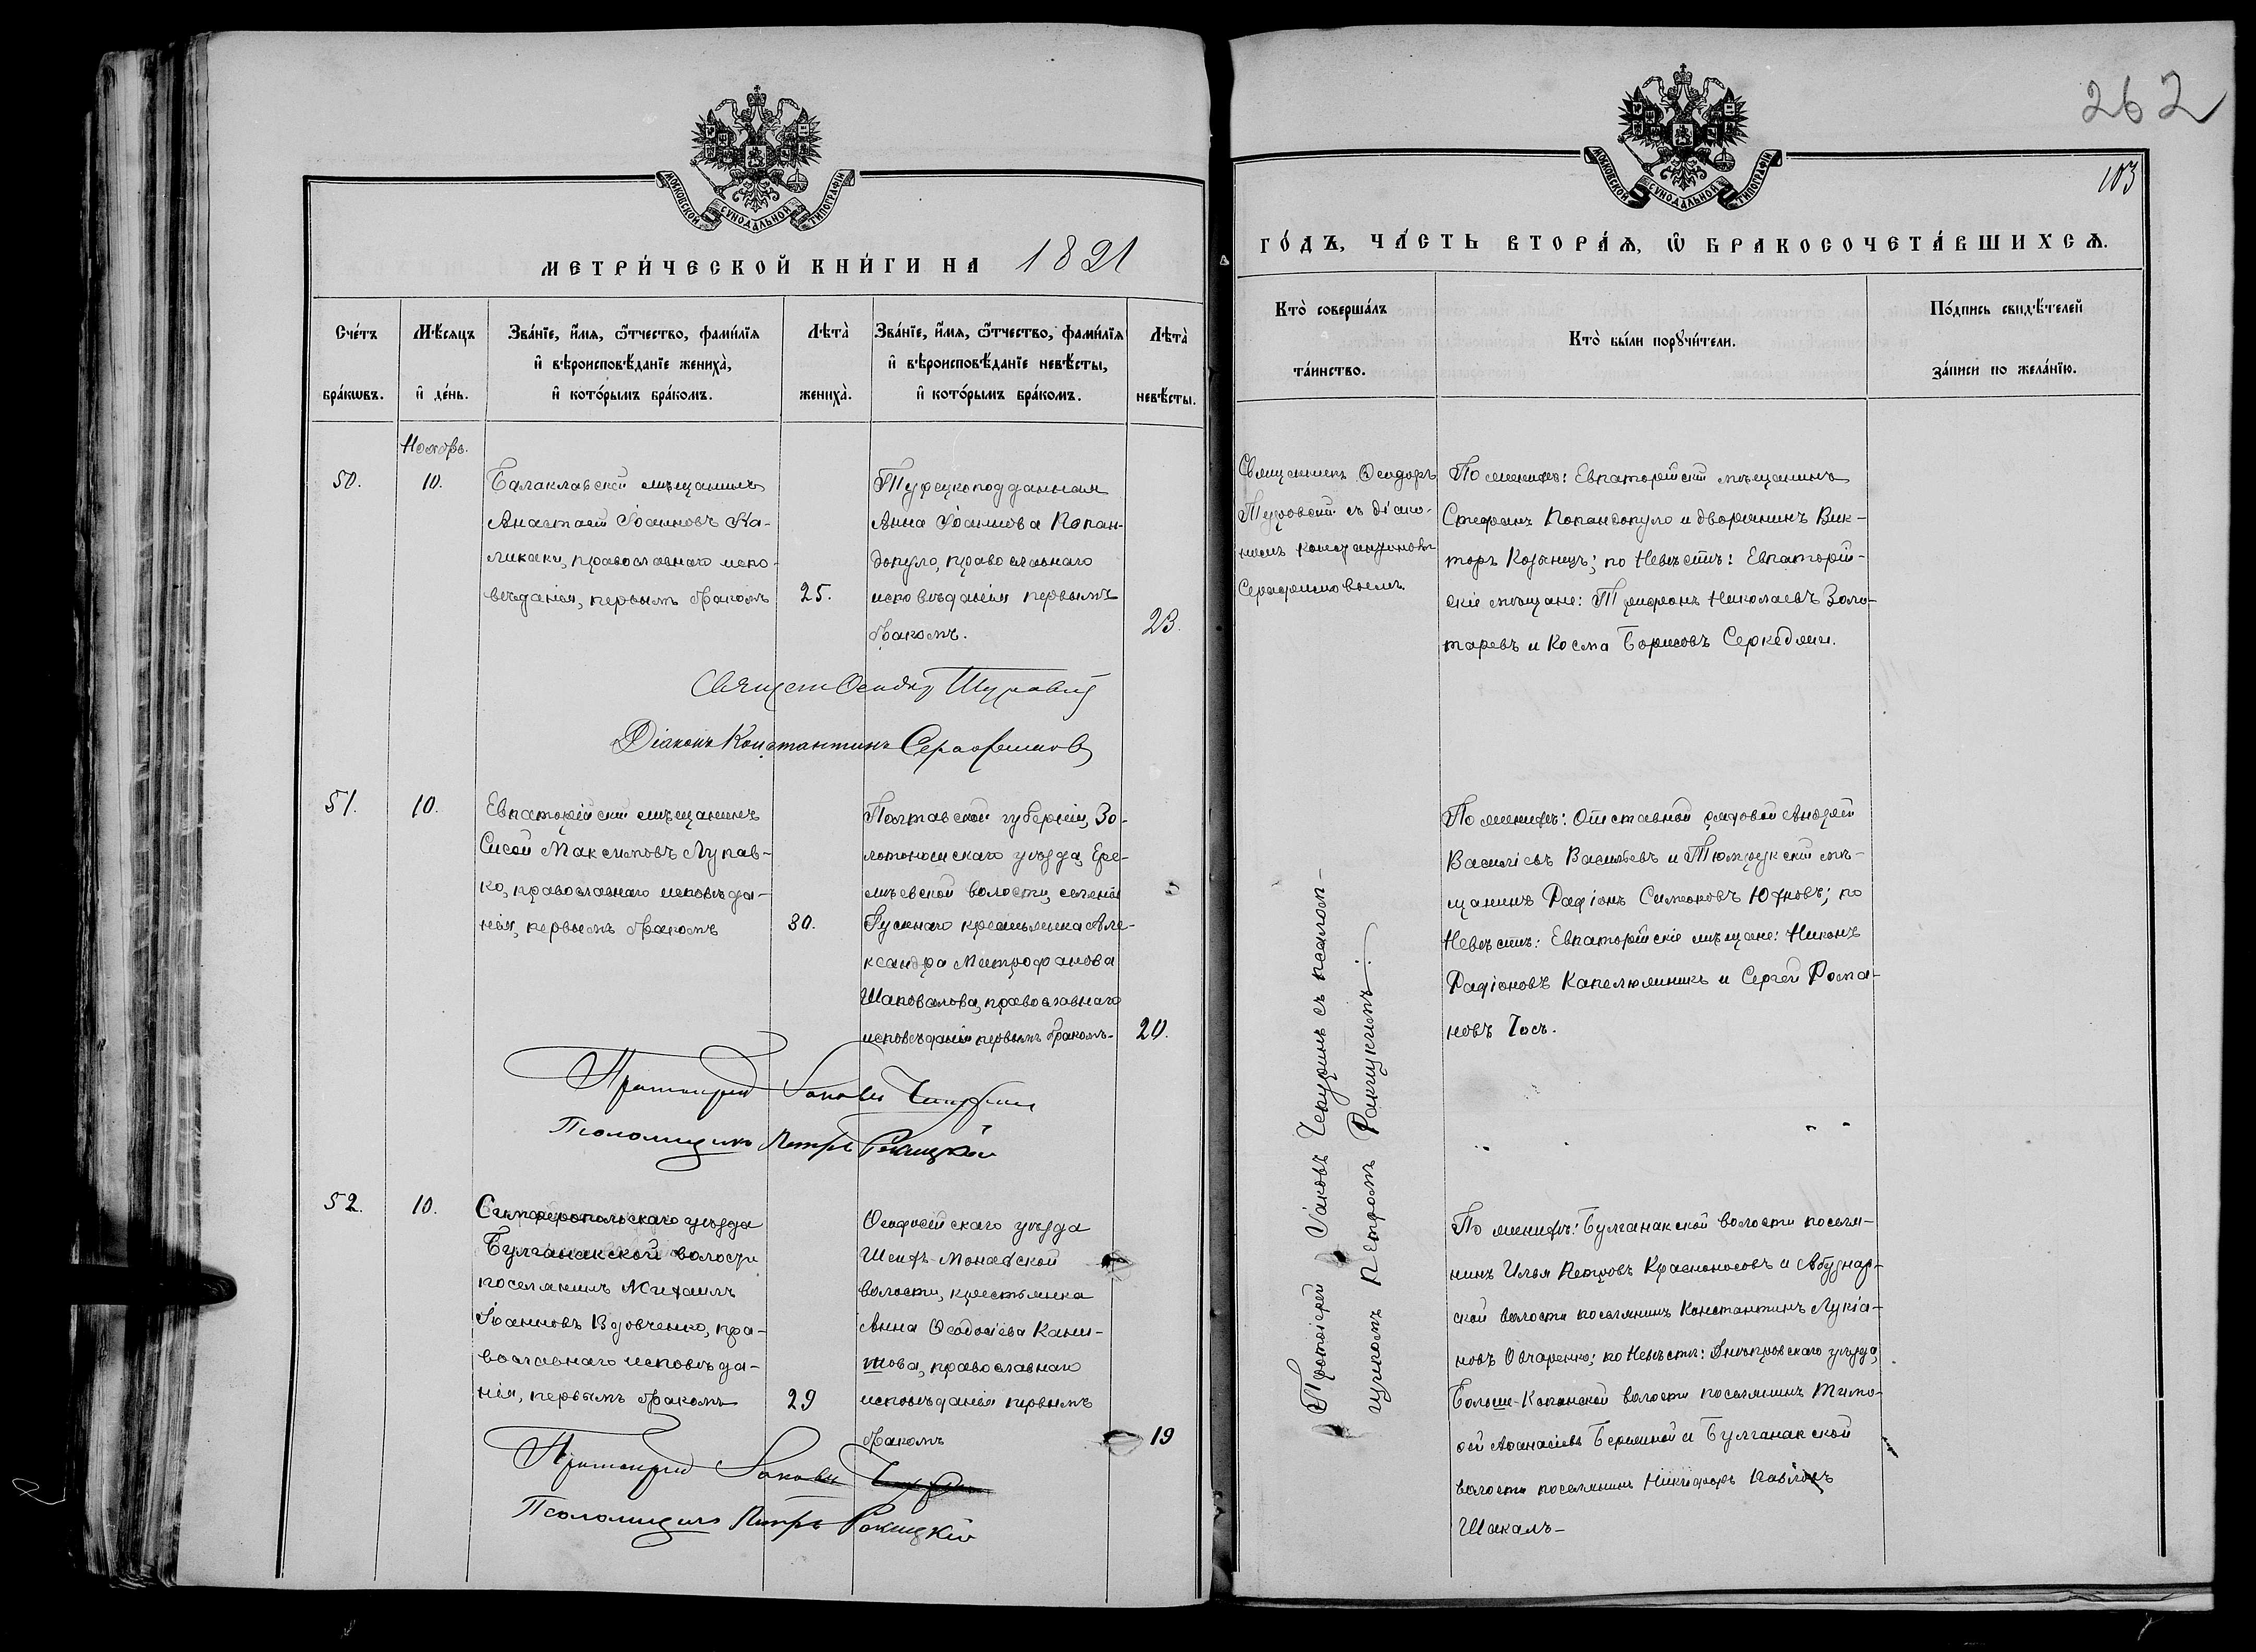 МОСКОВСКОЙ СУНОДАЛЬНОЙ ТИПОГРАФІИ
МЕТРИ́ЧЕСКОЙ КНИ́ГИ НА 1891
Сче́тъ бра́кѡвъ.
Мѣ́сяцъ и҆ де́нь.
Зва́нїе, и҆́мя, ѻ҆́тчество, фами́лїя
и҆ вѣроисповѣ́данїе жениха̀,
и҆ кото́рымъ бра́комъ.
Лѣта̀ жениха̀.
Зва́нїе, и҆́мя, ѻ҆́тчество, фами́лїя
и҆ вѣроисповѣ́данїе невѣ́сты,
и҆ кото́рымъ бра́комъ.
Лѣта̀ невѣ́сты.
Ноябрь.
50.
10.
Балаклавскій мѣщанинъ
Анастасій Іоанновъ Ка-
ликаки, православнаго испо-
вѣданія, первымъ бракомъ
25.
Турецкоподданная
Анна Іоаннова Попан-
допуло, православнаго
исповѣданія первымъ
бракомъ.
23.
Діаконъ Константинъ Серафимовъ
51.
10.
Евпаторійскій мѣщанинъ
Сисой Максимовъ Лупав-
ко, православнаго исповѣда-
нія, первымъ бракомъ
30.
Полтавской губерніи, Зо-
лотоношскаго уѣзда, Ере-
мѣевской волости, селенія
крестьянка Але-
ксандра Митрофанова
Шаповалова, православнаго
исповѣданія первымъ бракомъ.
20.
Протоіерей Іаковъ Чепуринъ
Псаломщикъ Петръ Ракицкій
52.
10.
Симферопольскаго уѣзда
Булганакской волости
поселянинъ Михаилъ
Іоанновъ Вдовченко, пра-
вославнаго исповѣда-
нія, первымъ бракомъ
29
Ѳеодосійскаго уѣзда
Шейхъ-Монакской
волости, крестьянка
Анна Ѳеодосіева Кани-
шова, православнаго
исповѣданія первымъ
бракомъ
19
Протоіерей Іаковъ Чепуринъ
Псаломщикъ Петръ Ракицкій
262
103
МОСКОВСКОЙ СУНОДАЛЬНОЙ ТИПОГРАФІИ
ГО́ДЪ, ЧА́СТЬ ВТОРА́Я, Ѡ҆ БРАКОСОЧЕТА́ВШИХСЯ.
Кто̀ соверша́лъ
та́инство.
Кто̀ бы́ли порꙋчи́тели.
По́дпись свидѣ́телей
за́писи по жела́нїю.
Священникъ Ѳеодоръ
съ діако-
номъ Константиномъ
Серафимовымъ
По женихѣ: Евпаторійскій мѣщанинъ
Стефанъ Попандопуло и дворянинъ Вик-
торъ Козинецъ; по невѣстѣ: Евпаторій-
скіе мѣщане: Трифонъ Николаевъ Золо-
таревъ и Косма Борисовъ Серкеджи.
Протоіерей Іаковъ Чепуринъ съ псалом-
щикомъ Петромъ Ракицкимъ.
По женихѣ: Отставной рядовой Андрей
Василіевъ Васильевъ и Темрюкскій мѣ-
щанинъ Радіонъ Симоновъ Юхновъ; по
Невѣстѣ: Евпаторійскіе мѣщане: Никонъ
Радіоновъ Капелюшникъ и Сергей Рома-
новъ Тосъ.
По женихѣ: Булганакской волости поселя-
нинъ Илья Петровъ Красноносовъ и Абузлар-
ской волости поселянинъ Константинъ Лукіа-
новъ Овчаренко; по невѣстѣ: Днѣпровскаго уѣзда,
Больше-Копанской волости поселянинъ Тимо-
ѳей Аѳанасіевъ и Булганакской
волости поселянинъ Никифоръ Павловъ
Шакалъ